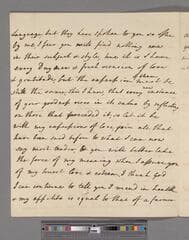 language but they have spoken to you so often
by me, I fear you will find nothing new
in their subject & style, nor it is I have
every day, new & fresh occasion of love
& gratitude, but the expression must be often
still the same, tho' I know, that every instance
of your goodness rises in its value by reflecting
on those that preceeded it, so let it be
with my expressions of love, pain, all that
have been said before to what I can now
my most tender to you will rather take
the force of my meaning when I assure you
of my truest love & esteem, I thank God
I can continue to tell you I mend in health
& my appetite is equal to that of a farmer